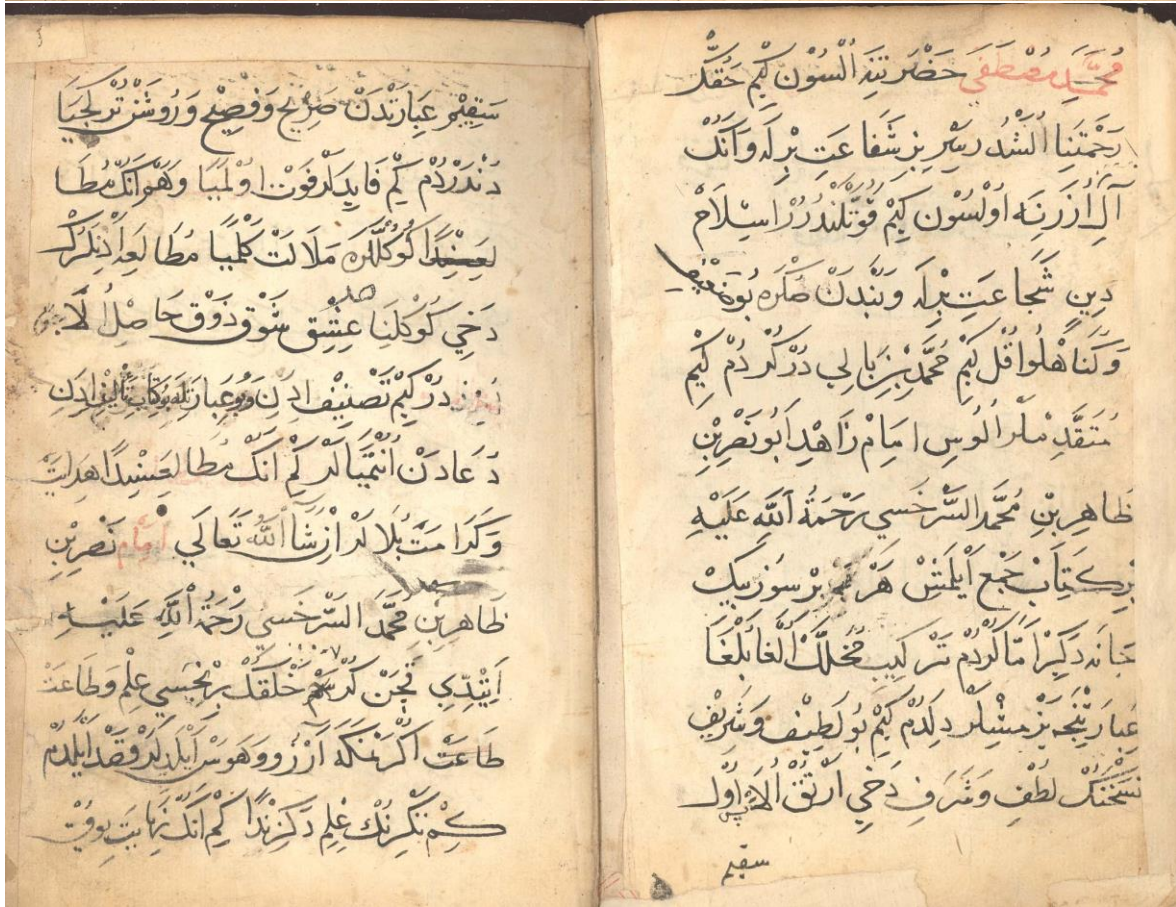 مُحَمَّدِ مُصْطَفَى حَضْرَتِنَه اُلْسُون كِیمْ حَقُّكْ
رَحْمَتِنَا اُلَشْدُرِسَرْ بِزِ شَفَاعَتِ بِرْلَه وَاَنُكْ
آلِ اُزَرِنَه اُولْسُون كِیمْ قُوَّتْلَنْدُرْدُلَرْ اِسْلَامْ
دِینِ شَجَاعَتِ بِرْلَه وَبُنْدَنْ صُكْرَه بُو ضَعِیف
وَكُنَاهْلُو قُل كِیمْ مُحَمَّدْ بِنِ بَالِی دُرْ كُرْدُمْ كِیمْ
مُتَقَدِّمْلَرْ اُلُوسِ اِمَامْ زَاهِدْ اَبُو نَصْرِ بْنِ
طَاهِرِ بْنِ مُحَمَّدِ السَّرْخَسِی رَحْمَةُ اللّٰهِ عَلَیْهِ
بِرْ كِتَابْ جَمْع اَیْلَمِشْ هَرْ بِرْ سُوزِ بِیكْ
جَانَه دَكَرْ اَمَّا كُرْدُمْ تَرْكِیب مُخَلَّكْ اُلْغَا بُلْغَا
عِبَارَتِنْجَه یَزْمِشْلَرْ دِلَدُمْ كِیمْ بُو لَطِیْف وَشَرِیفْ
نُسْخَنُكْ لُطْفِ وَشَرَفِ دَخِی اَرْتُقْ اُلَا اَوَّل
سقیم
سَقِیمْ عِبَارَتْدَنْ صَرِیحِ وَفَصِیْحِ وَرُوشَنْ تُرْكْجَیَا
دُنْدَرْدُمْ كِمْ فَایِدَلَرْ فَوْتْ اُولْمَیَا وَهَمْ اَنُكْ مُطَا
لَعَسِنْدَا كُوكُلْلَرَه مَلَالَتْ كَلْمَیَا مُطَالَعَه اِدَنْلَرُكْ
دَخِی كُوكُلِنَا عِشْق شَوْق ذَوْق حَاصِلْ اُلَا
دُرْ كِیمْ تَصْنِیْف اِدَنِ وَبُو عِبَارَتْلَه بُو كِتَابْ تَألِیْف اِدَنِ
دُعَادَنْ اُنُتْمَیَالَرْ كِمْ اَنُكْ مُطَالَعَسِنْدَا هِدَایَتْ
وَكَرَامَتْ بُلَالَرْ اِنْ شَآ اَللّٰهُ تَعَالَی اِمَامْ نَصْرِ بْنِ
طَاهِرِ بْنِ مُحَمَّدِ السَّرْخَسِی رَحْمَةُ اللّٰهِ عَلَیْهِ
اَیْتْدِی قَچَنْ كُرْدُمْ خَلْقُكْ بِرْنِجَسِی عِلْم وَطَاعَتْ
طَاعَتْ اُكْرَنْمَكَه آرْزُو وَهَوَسْ اَیْلَدِیلَرْ قَصْد اَیْلَدُمْ
كِمْ تَكْرِنُكْ عِلِم دَكِزِنْدَا كِمْ اَنُكْ نِهَایَتِ یُوقْ